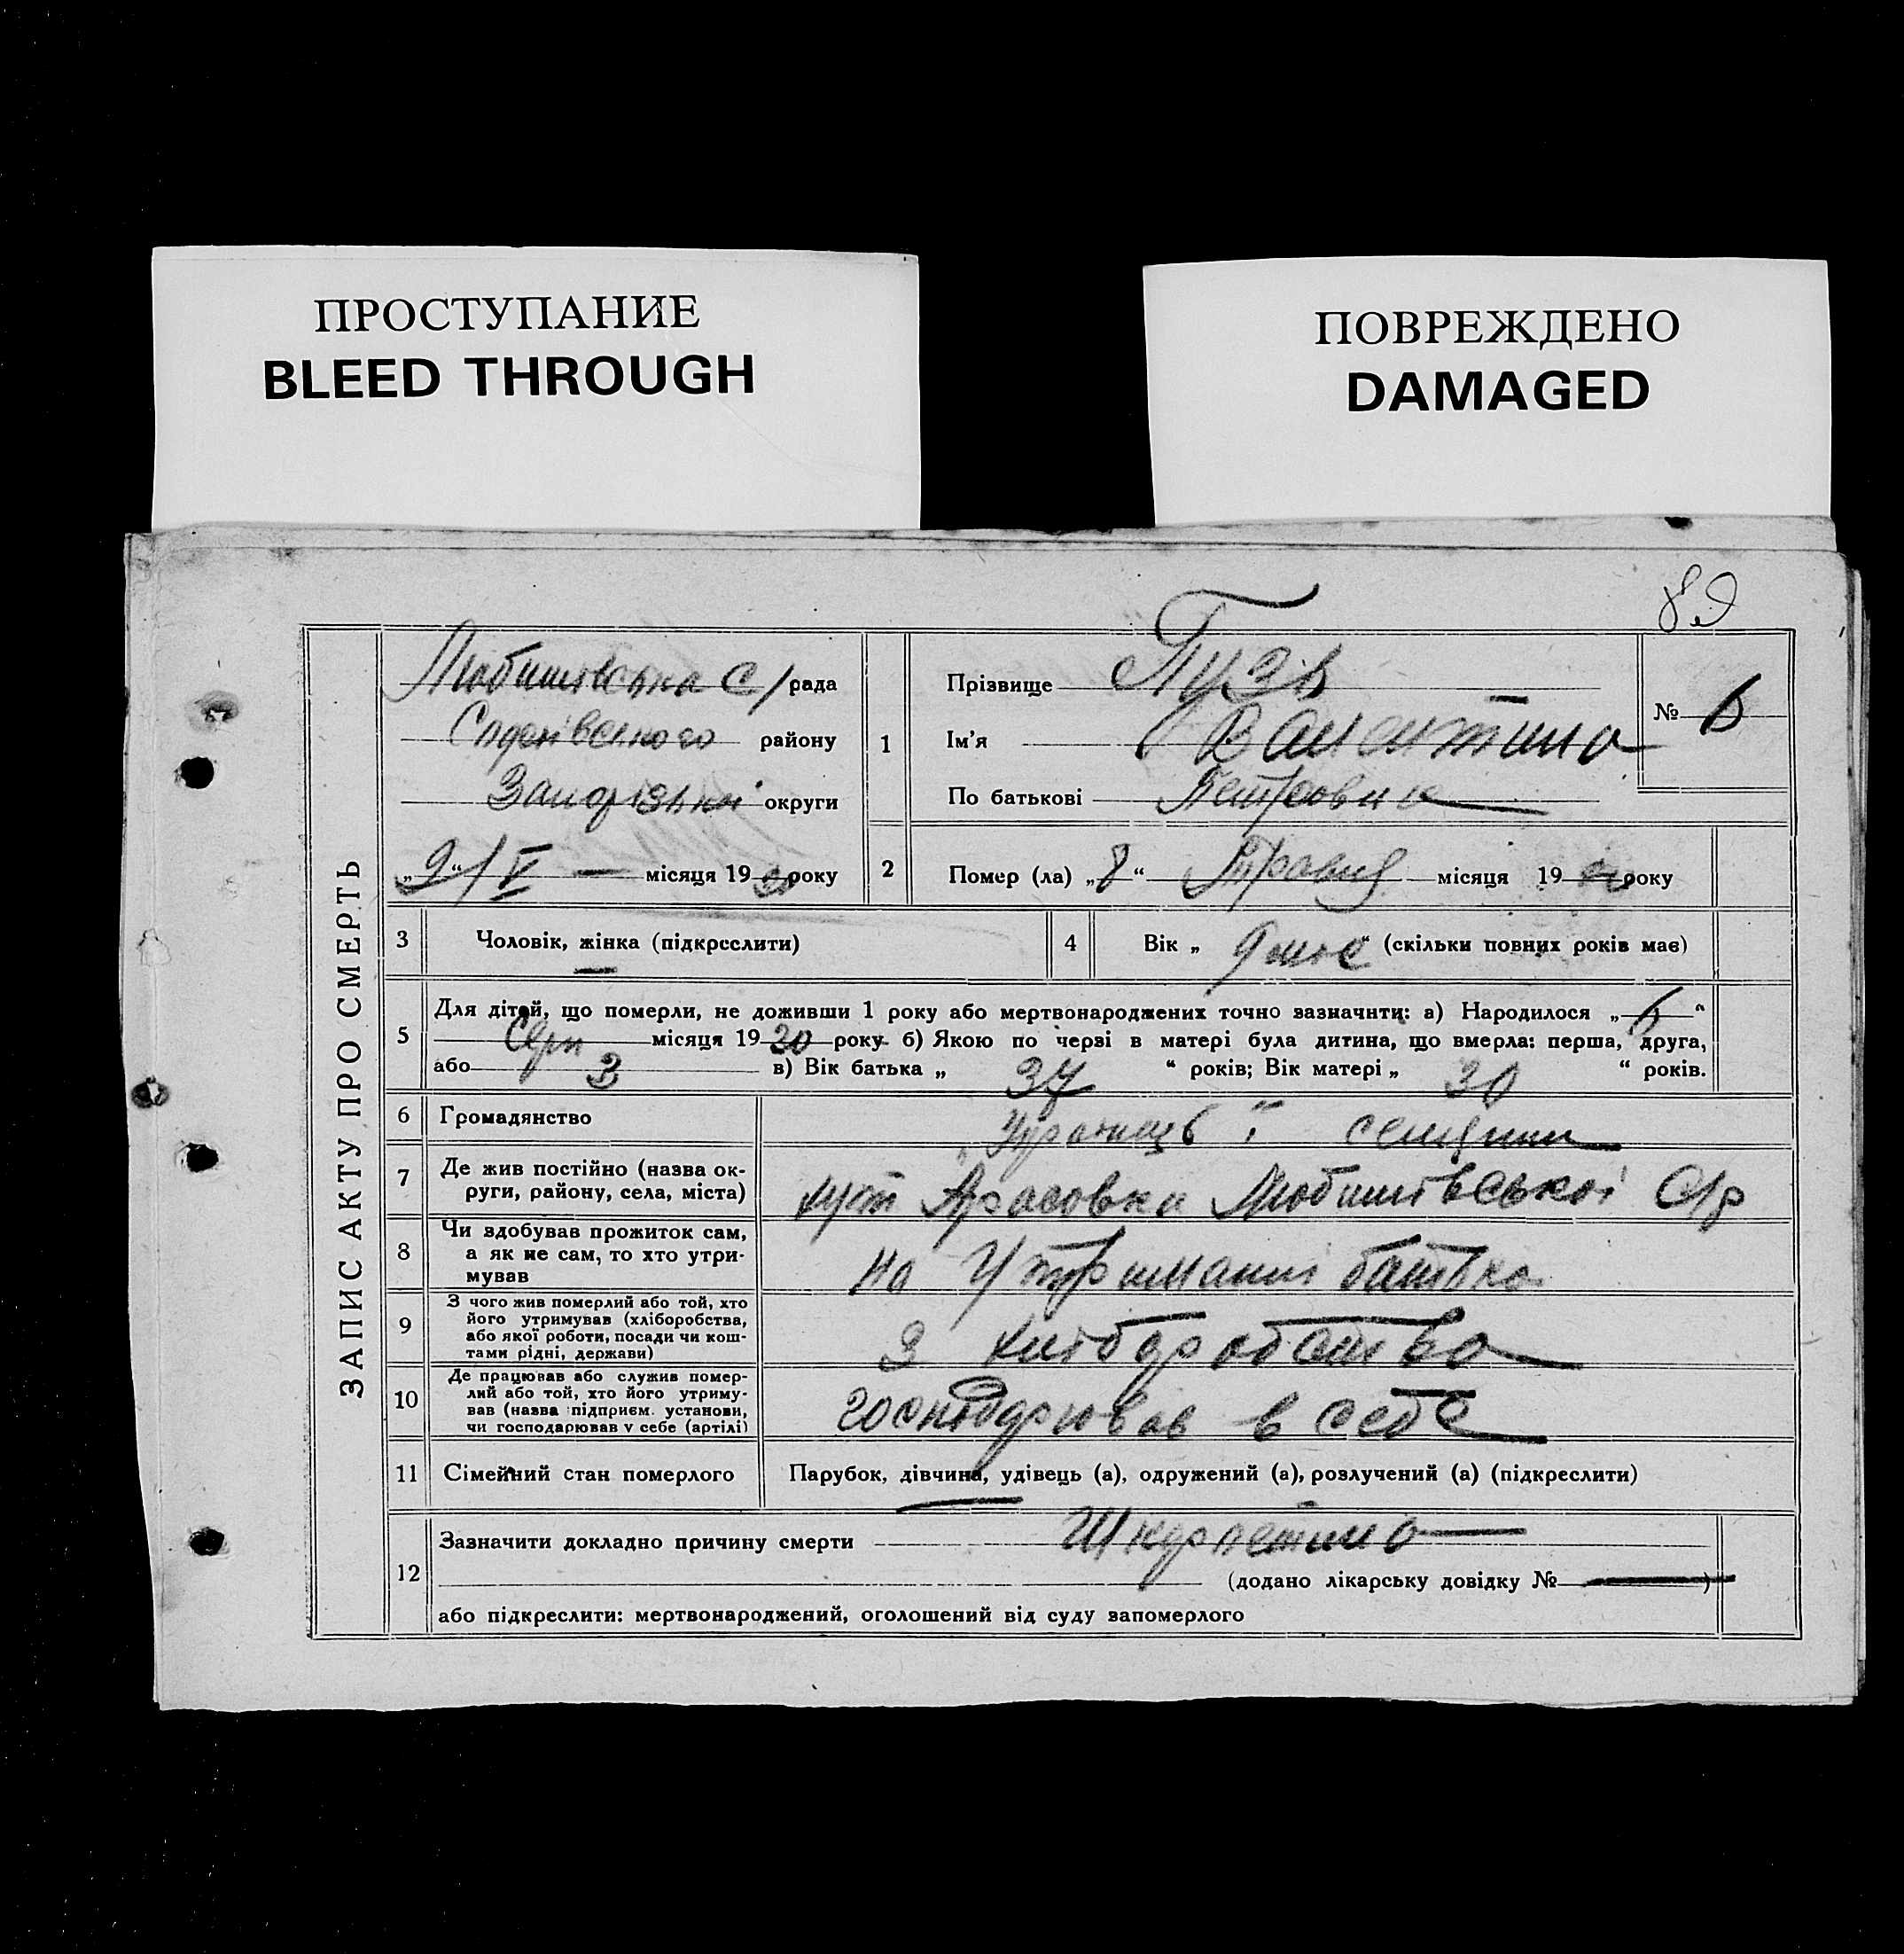 ПРОСТУПАНИЕ
BLEED THROUGH
ПОВРЕЖДЕНО
DAMAGED
ЗАПИС АКТУ ПРО СМЕРТЬ
Любишівська С/рада
району
округи
„9“/V — місяця 19 року
1
Прізвище
Ім'я Валентина
По батькові Петровна
№ 6
2
Помер (ла) „8“ Травня місяця 19 року
3
Чоловік, жінка (підкреслити)
4
Вік „9 міс“ (скільки повних років має)
5
Для дітей, що померли, не доживши 1 року або мертвонароджених точно зазначити: а) Народилося „6“
Серп місяця 1920 року б) Якою по черзі в матері була дитина, що вмерла: перша, друга,
або 3 в) Вік батька „37“ років; Вік матері „30“ років.
6
Громадянство
7
Де жив постійно (назва ок-
руги, району, села, міста)
хут Любишівської С/р
8
Чи здобував прожиток сам,
а як не сам, то хто утри-
мував
на Утриманні батька
9
З чого жив померлий або той, хто
його утримував (хліборобства,
або якої роботи, посади чи кош-
тами рідні, держави)
З хліборобства
10
Де працював або служив помер-
лий або той, хто його утриму-
вав (назва підприєм. установи,
чи господарював у себе (артілі)
господарював в себе
11
Сімейний стан померлого
Парубок, дівчина, удівець (а), одружений (а), розлучений (а) (підкреслити)
12
Зазначити докладно причину смерти
(додано лікарську довідку № )
або підкреслити: мертвонароджений, оголошений від суду запомерлого